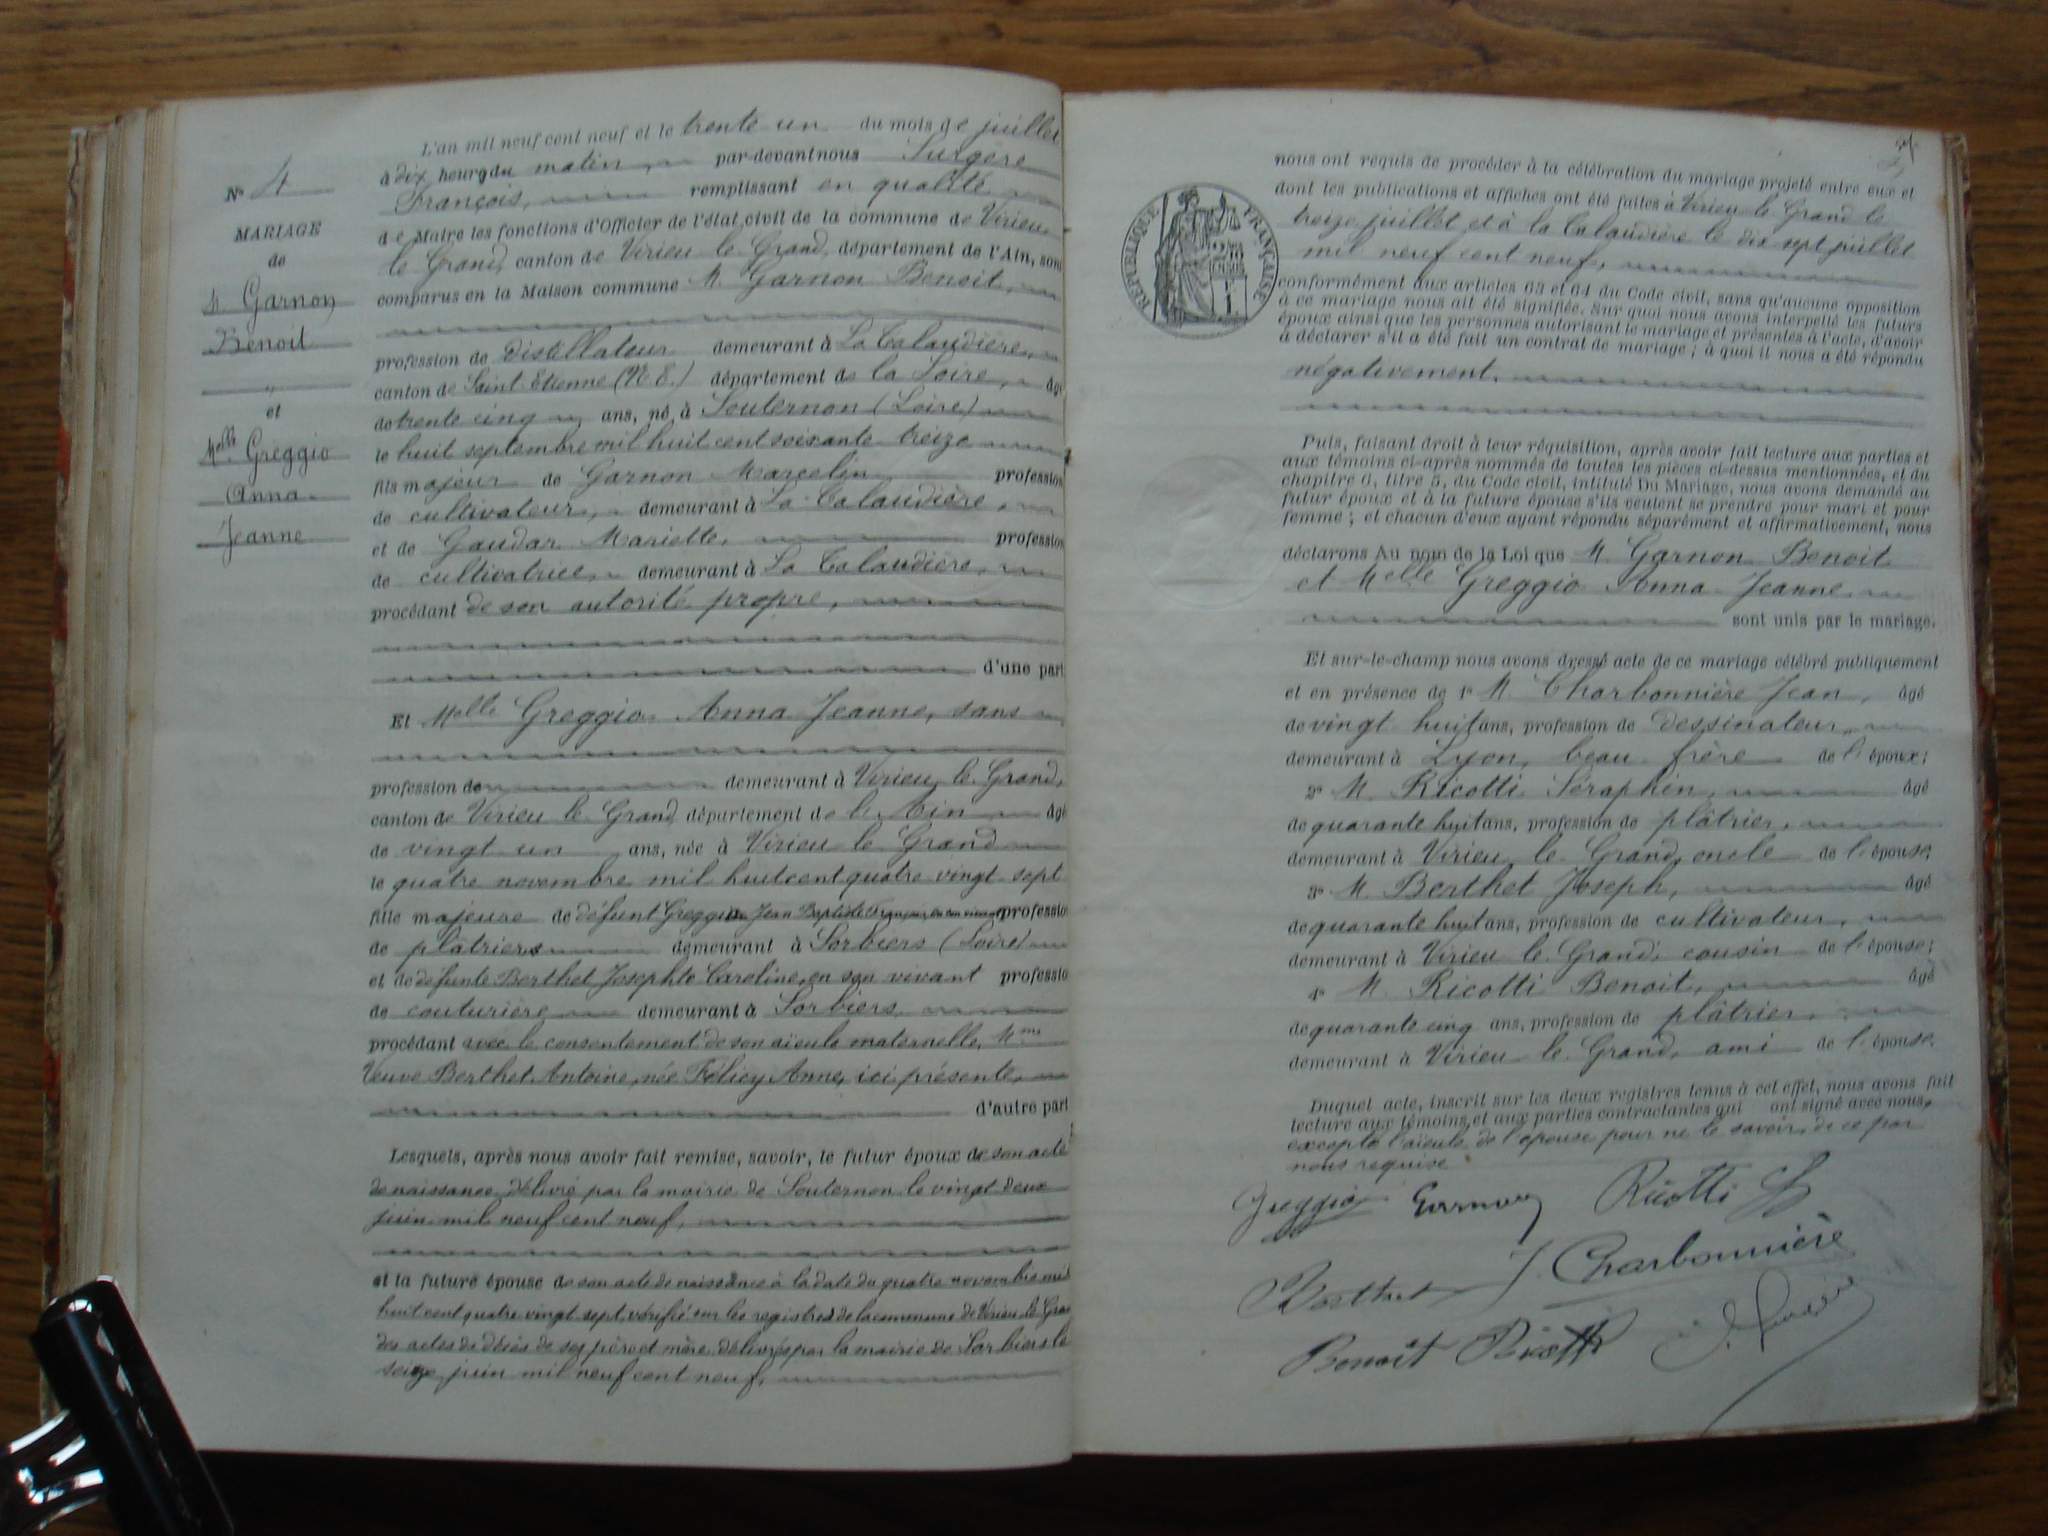 N° 4
MARIAGE
de
M. Garnon
Benoit
et
Melle Greggio
Anna
Jeanne
L'an mil neuf cent neuf et le trente un du mois de juillet
à dix heures du matin, par-devant nous Surgère
François, remplissant en qualité
de Maire les fonctions d'Officier de l'état civil de la commune de Virieu
le Grand, canton de Virieu le Grand, département de l'Ain, sont
comparus en la Maison commune M. Garnon Benoit,
profession de distillateur demeurant à La Talaudière,
canton de Saint-Etienne (N.E.) département de la Loire, âgé
de trente cinq ans, né à Souternon (Loire)
le huit septembre mil huit cent soixante treize
fils majeur de Garnon Marcelin profession
de cultivateur, demeurant à La Talaudière,
et de Gaudar Mariette, profession
de cultivatrice, demeurant à La Talaudière,
procédant de son autorité propre,
d'une part
Et Melle Greggio Anna Jeanne, sans
profession de demeurant à Virieu le Grand,
canton de Virieu le Grand département de l'Ain âgé
de vingt un ans, née à Virieu le Grand
le quatre novembre mil huit cent quatre vingt sept
fille majeure de défunt Greggio Jean Baptiste François, en son vivant profession
de plâtrier demeurant à Sorbiers (Loire)
et de défunte Berthet Josephte Caroline, en son vivant profession
de couturière demeurant à Sorbiers
procédant avec le consentement de son aïeule maternelle, Mme
Veuve Berthet Antoine, née Félicy Anne, ici présente,
d'autre part
Lesquels, après nous avoir fait remise, savoir, le futur époux de son acte
de naissance délivré par la mairie de Souternon le vingt deux
juin mil neuf cent neuf,
et la future épouse de son acte de naissance à la date du quatre novembre mil
huit cent quatre vingt sept, vérifié sur les registres de la commune de Virieu le Grand
des actes de décès de ses père et mère délivrés par la mairie de Sorbiers le
seize juin mil neuf cent neuf,
RÉPUBLIQUE FRANÇAISE
nous ont requis de procéder à la célébration du mariage projeté entre eux et
dont les publications et affiches ont été faites à Virieu le Grand le
treize juillet et à la Talaudière le dix sept juillet
mil neuf cent neuf,
conformément aux articles 63 et 64 du Code civil, sans qu'aucune opposition
à ce mariage nous ait été signifiée. Sur quoi nous avons interpellé les futurs
époux ainsi que les personnes autorisant le mariage et présentes à l'acte, d'avoir
à déclarer s'il a été fait un contrat de mariage ; à quoi il nous a été répondu
négativement.
Puis, faisant droit à leur réquisition, après avoir fait lecture aux parties et
aux témoins ci-après nommés de toutes les pièces ci-dessus mentionnées, et du
chapitre 6, titre 5, du Code civil, intitulé Du Mariage, nous avons demandé au
futur époux et à la future épouse s'ils veulent se prendre pour mari et pour
femme ; et chacun d'eux ayant répondu séparément et affirmativement, nous
déclarons Au nom de la Loi que M. Garnon Benoit
et Melle Greggio Anna Jeanne
sont unis par le mariage.
Et sur-le-champ nous avons dressé acte de ce mariage célébré publiquement
et en présence de 1° M. Charbonnière Jean, âgé
de vingt huit ans, profession de dessinateur,
demeurant à Lyon, beau-frère de l'époux;
2° M. Ricotti Séraphin, âgé
de quarante huit ans, profession de plâtrier,
demeurant à Virieu le Grand, oncle de l'épouse;
3° M. Berthet Joseph, âgé
de quarante huit ans, profession de cultivateur,
demeurant à Virieu le Grand, cousin de l'épouse;
4° M. Ricotti Benoit, âgé
de quarante cinq ans, profession de plâtrier,
demeurant à Virieu le Grand, ami de l'épouse.
Duquel acte, inscrit sur les deux registres tenus à cet effet, nous avons fait
lecture aux témoins, et aux parties contractantes qui ont signé avec nous,
excepté l'aïeule de l'épouse pour ne le savoir, de ce par
nous requise.
Greggio Garnon Ricotti S
Berthet J. Charbonnière
Benoit Ricotti